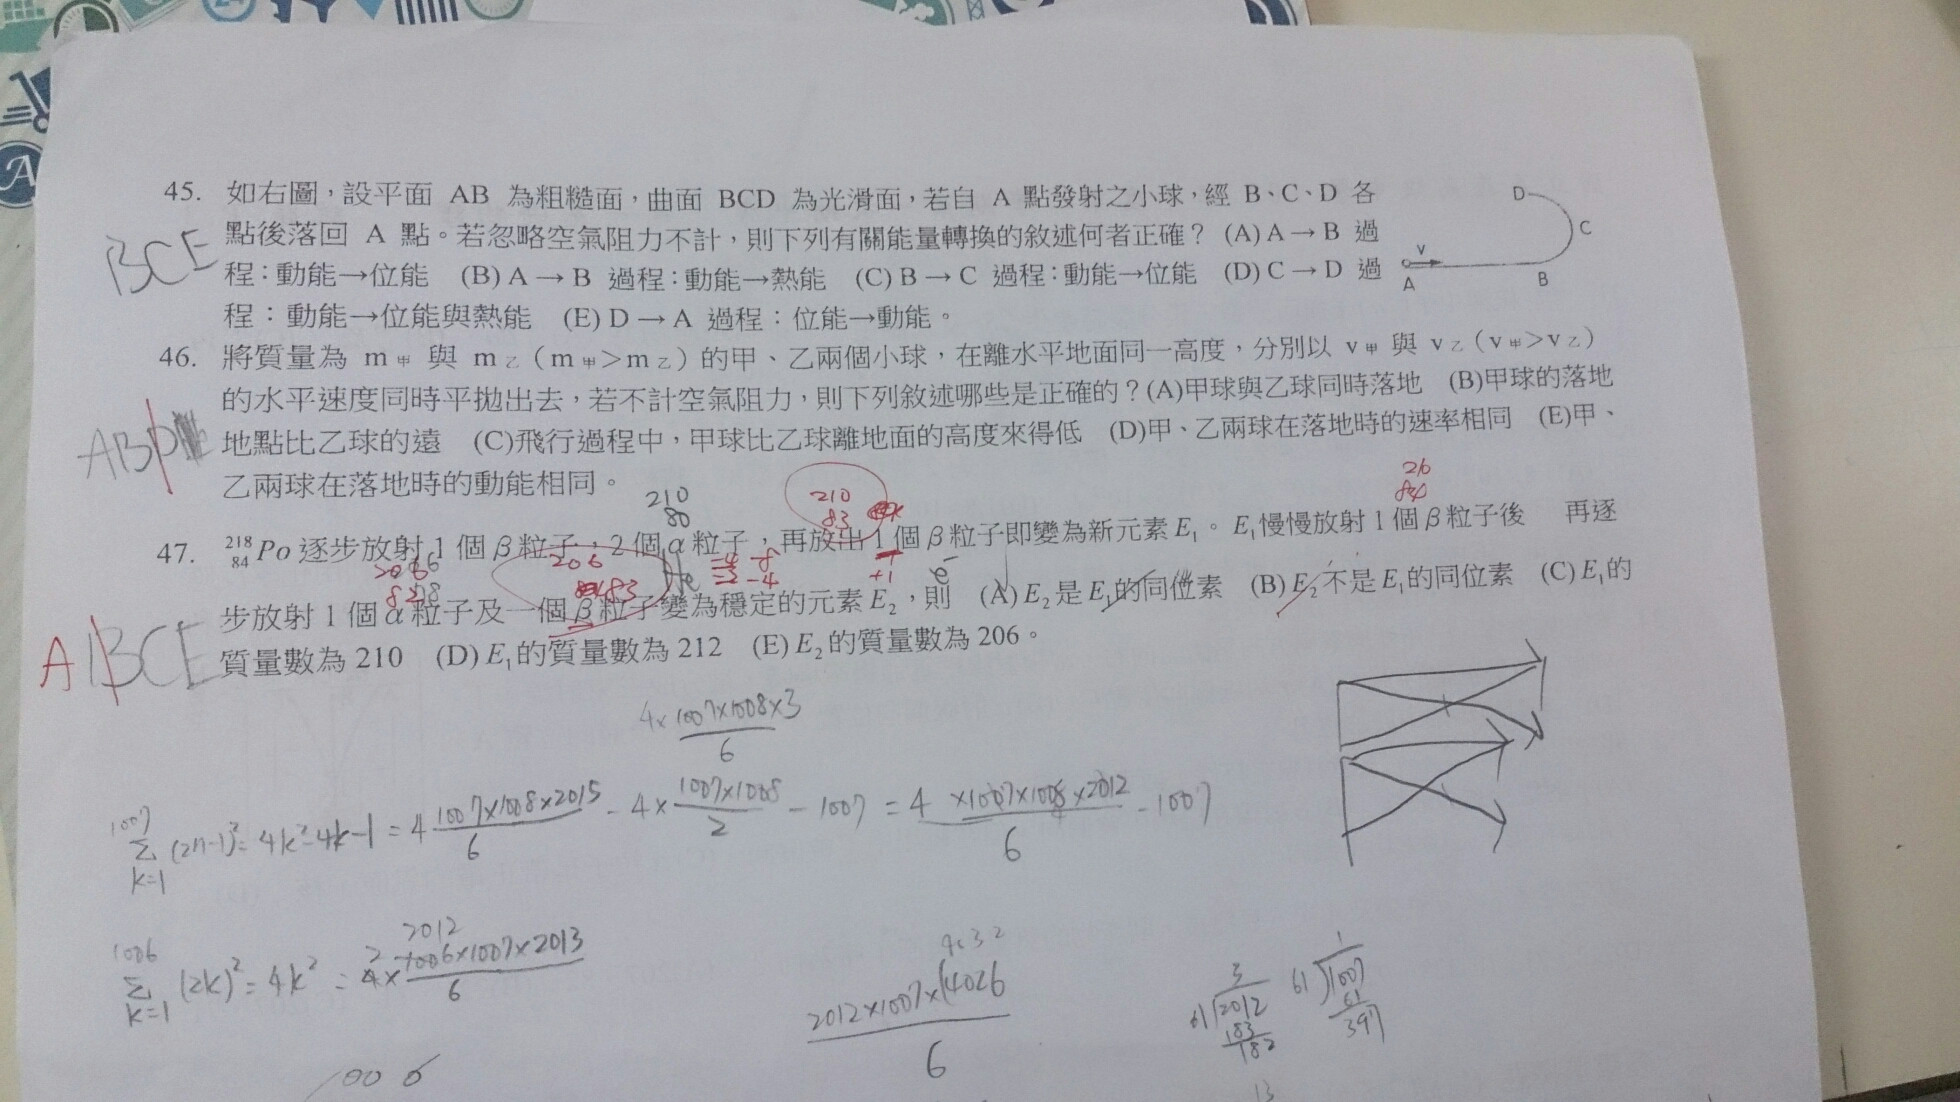 45. 如右圖，設平面 AB 為粗糙面，曲面 BCD 為光滑面，若自 A 點發射之小球，經 B、C、D 各
點後落回 A 點。若忽略空氣阻力不計，則下列有關能量轉換的敘述何者正確？ (A) A→B 過
程：動能→位能 (B) A→B 過程：動能→熱能 (C) B→C 過程：動能→位能 (D) C→D 過
程：動能→位能與熱能 (E) D→A 過程：位能→動能。
BCE
D
C
v
A
B
46. 將質量為 m甲 與 m乙（m甲>m乙）的甲、乙兩個小球，在離水平地面同一高度，分別以 v甲 與 v乙（v甲>v乙）
的水平速度同時平拋出去，若不計空氣阻力，則下列敘述哪些是正確的？(A)甲球與乙球同時落地 (B)甲球的落地
地點比乙球的遠 (C)飛行過程中，甲球比乙球離地面的高度來得低 (D)甲、乙兩球在落地時的速率相同 (E)甲、
乙兩球在落地時的動能相同。
ABD
210
80
210
83
26
84
47. ²¹⁸₈₄Po 逐步放射 1 個 β 粒子，2 個 α 粒子，再放出 1 個 β 粒子即變為新元素 E₁。E₁慢慢放射 1 個 β 粒子後 再逐
206
83
He
-4 -8
-2 -4
+1
e⁻
步放射 1 個 α 粒子及一個 β 粒子變為穩定的元素 E₂，則 (A) E₂是 E₁的同位素 (B) E₂不是 E₁的同位素 (C) E₁的
質量數為 210 (D) E₁的質量數為 212 (E) E₂的質量數為 206。
A BCE
4×1007×1008×3
6
1007
Σ (2n-1)² = 4k²-4k-1 = 4 1007×1008×2015 / 6 - 4× 1007×1008 / 2 - 1007 = 4 ×1007×1008×2012 / 6 - 1007
k=1
2012
1006
Σ (2k)² = 4k² = 4× 1006×1007×2013 / 6
k=1
4032
2012×1007×(4026
6
3
61 2012
183
182
1
61 1007
61
397
1006
13